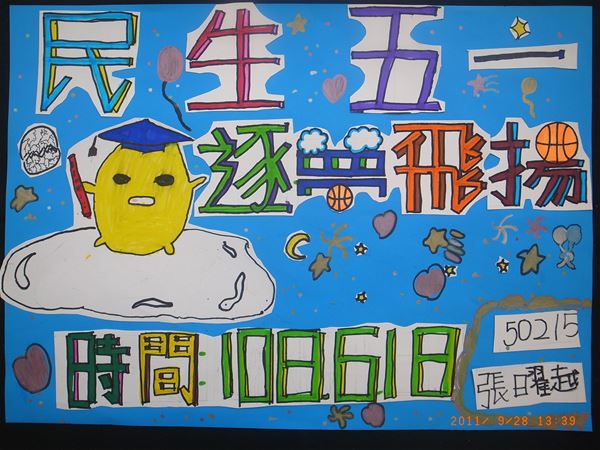 民生五一
逐夢飛揚
時間:108.618
50215
張曜越
2011/ 9/28 13:39